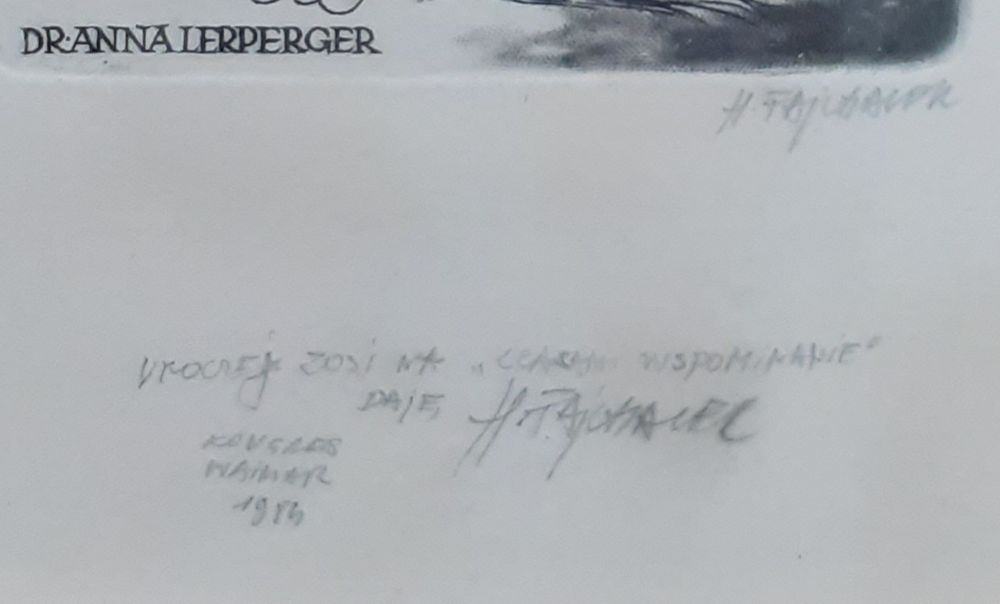 DR·ANNA LERPERGER
H. FAJCHALEK
UROCZEJ ZOSI NA „CZASEM WSPOMINANIE"
DAJE H. FAJCHALEK
KONGRES
WAIMAR
1984